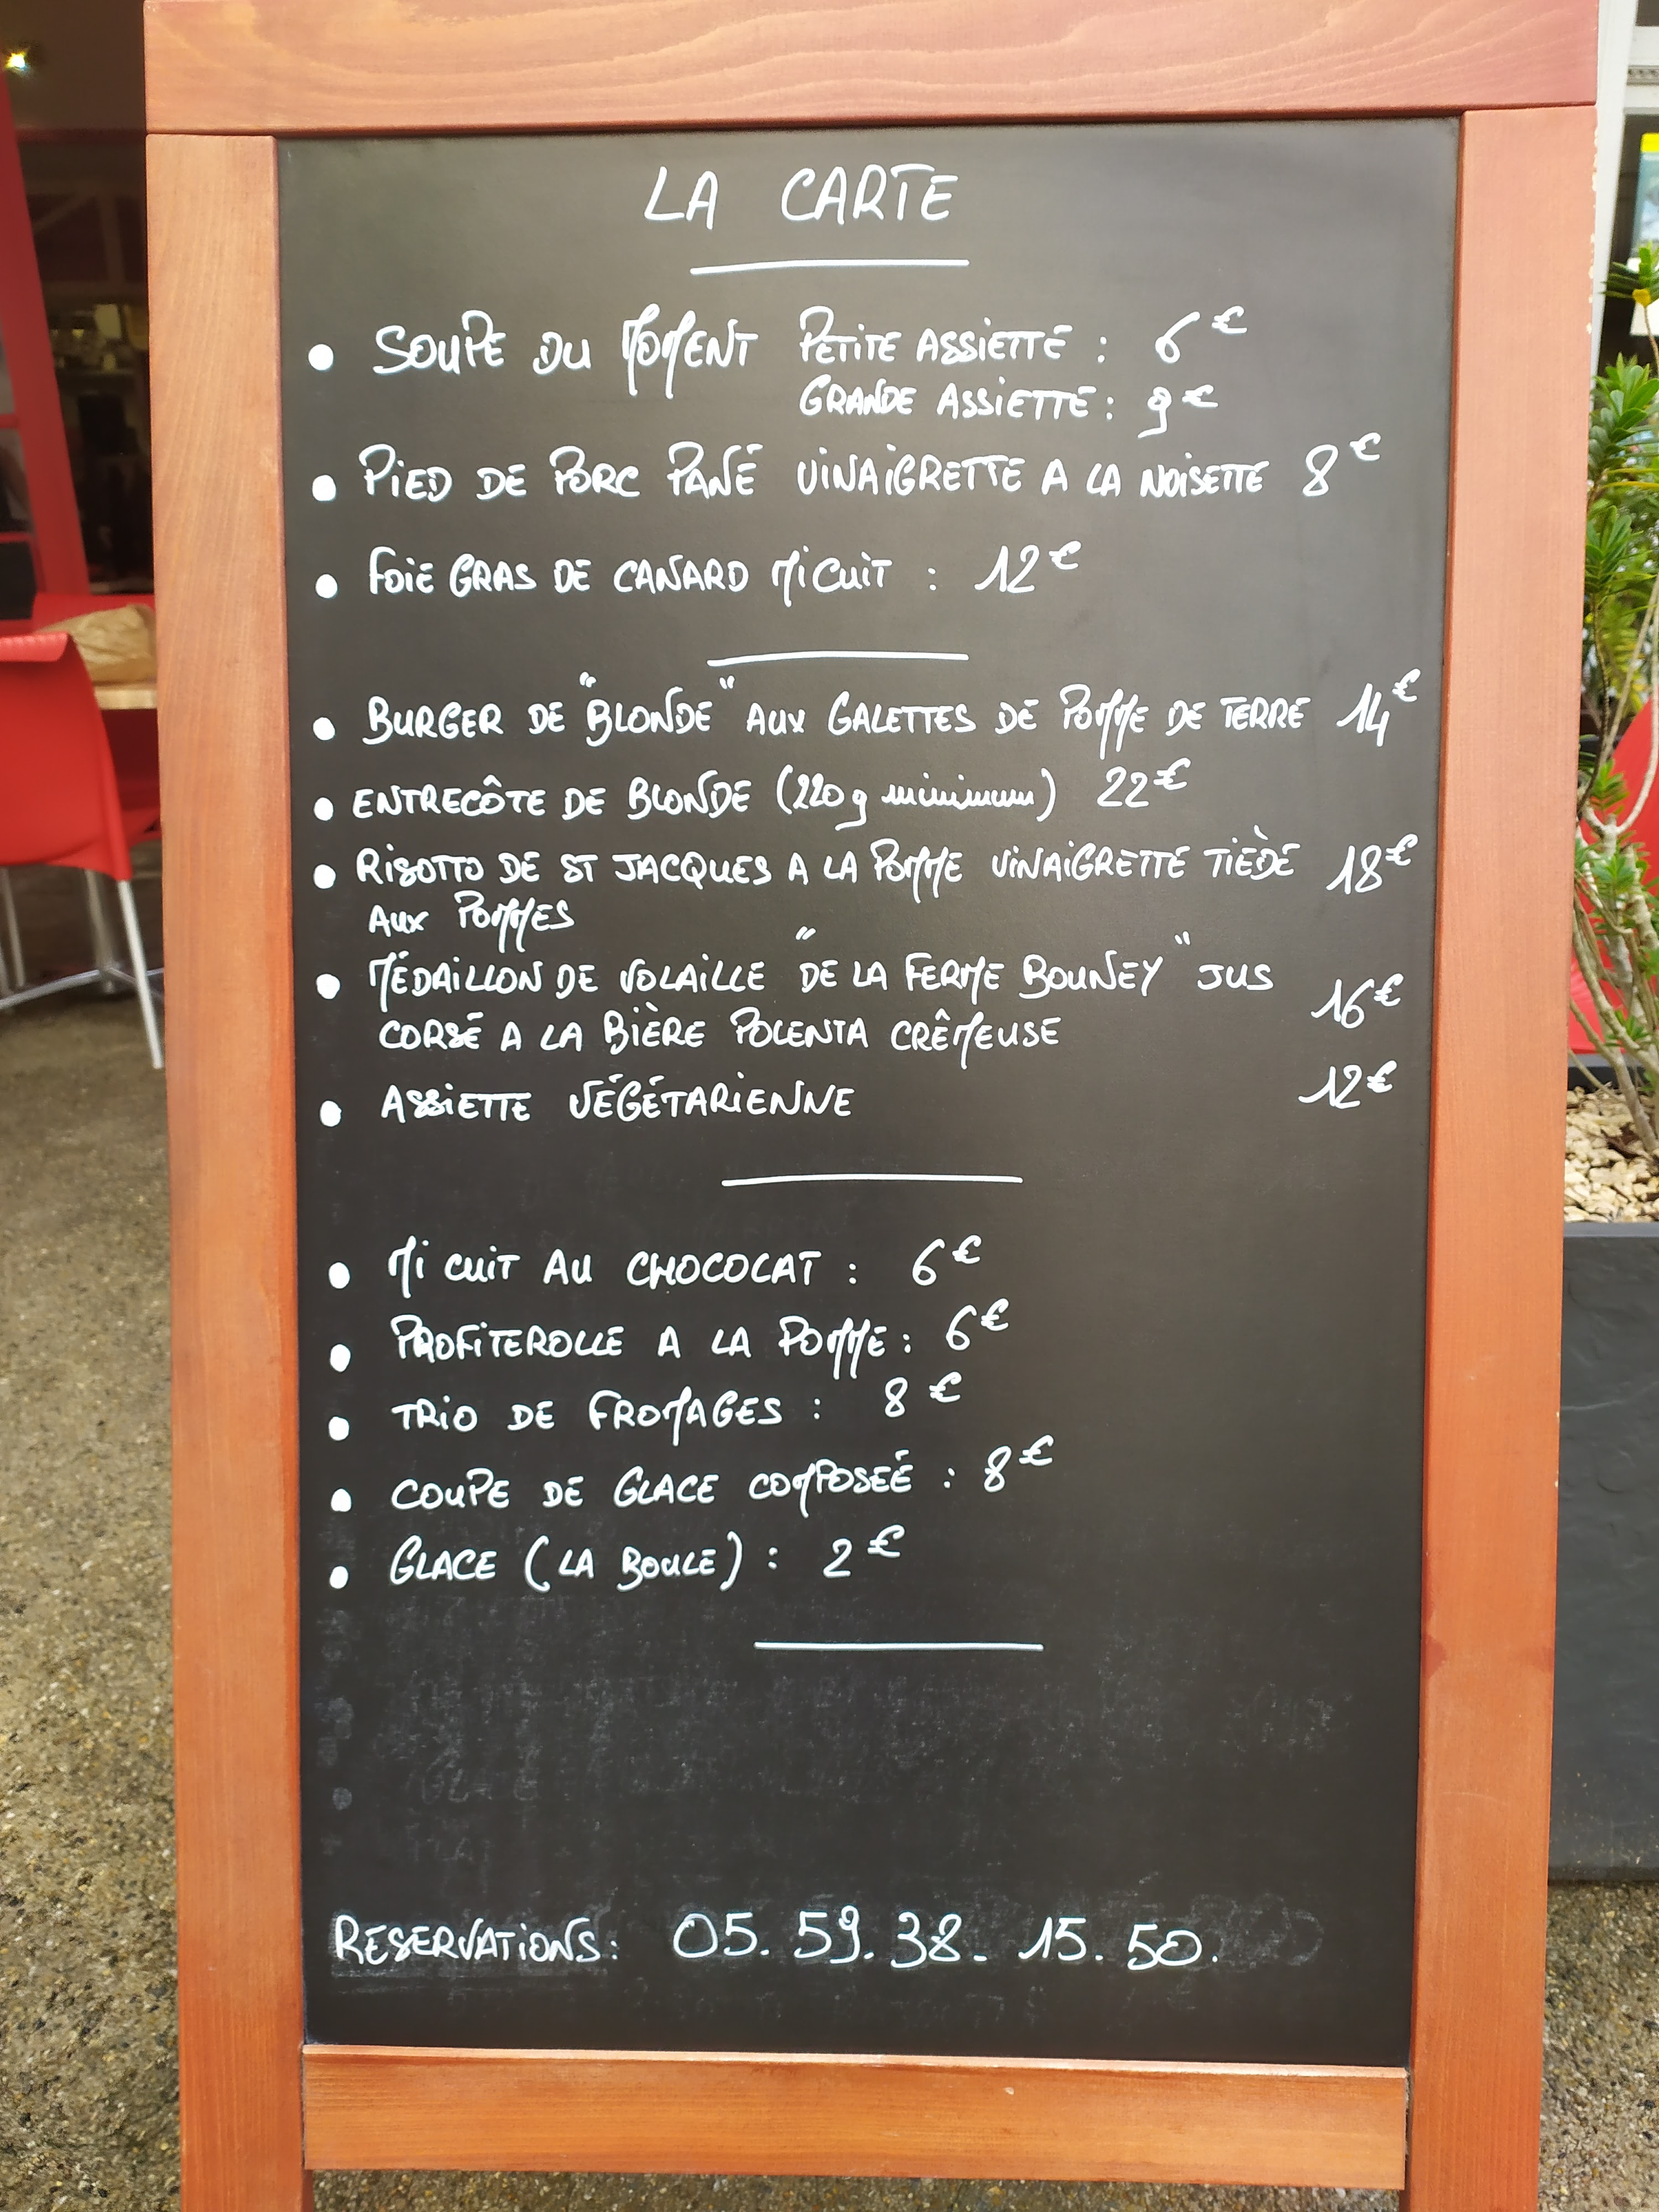 LA CARTE
• SOUPE DU MOMENT PETITE ASSIETTE : 6€
GRANDE ASSIETTE : 9€
• PIED DE PORC PANÉ VINAIGRETTE A LA NOISETTE 8€
• FOIE GRAS DE CANARD MICUIT : 12€
• BURGER DE "BLONDE" AUX GALETTES DE POMME DE TERRE 14€
• ENTRECÔTE DE BLONDE (220g minimum) 22€
• RISOTTO DE ST JACQUES A LA POMME VINAIGRETTE TIÈDE 18€
AUX POMMES
• MÉDAILLON DE VOLAILLE "DE LA FERME BOUNEY" JUS
CORSÉ A LA BIÈRE POLENTA CRÊMEUSE 16€
• ASSIETTE VÉGÉTARIENNE 12€
• MI CUIT AU CHOCOLAT : 6€
• PROFITEROLLE A LA POMME : 6€
• TRIO DE FROMAGES : 8€
• COUPE DE GLACE COMPOSEÉ : 8€
• GLACE (LA BOULE) : 2€
RESERVATIONS: 05. 59. 38. 15. 50.